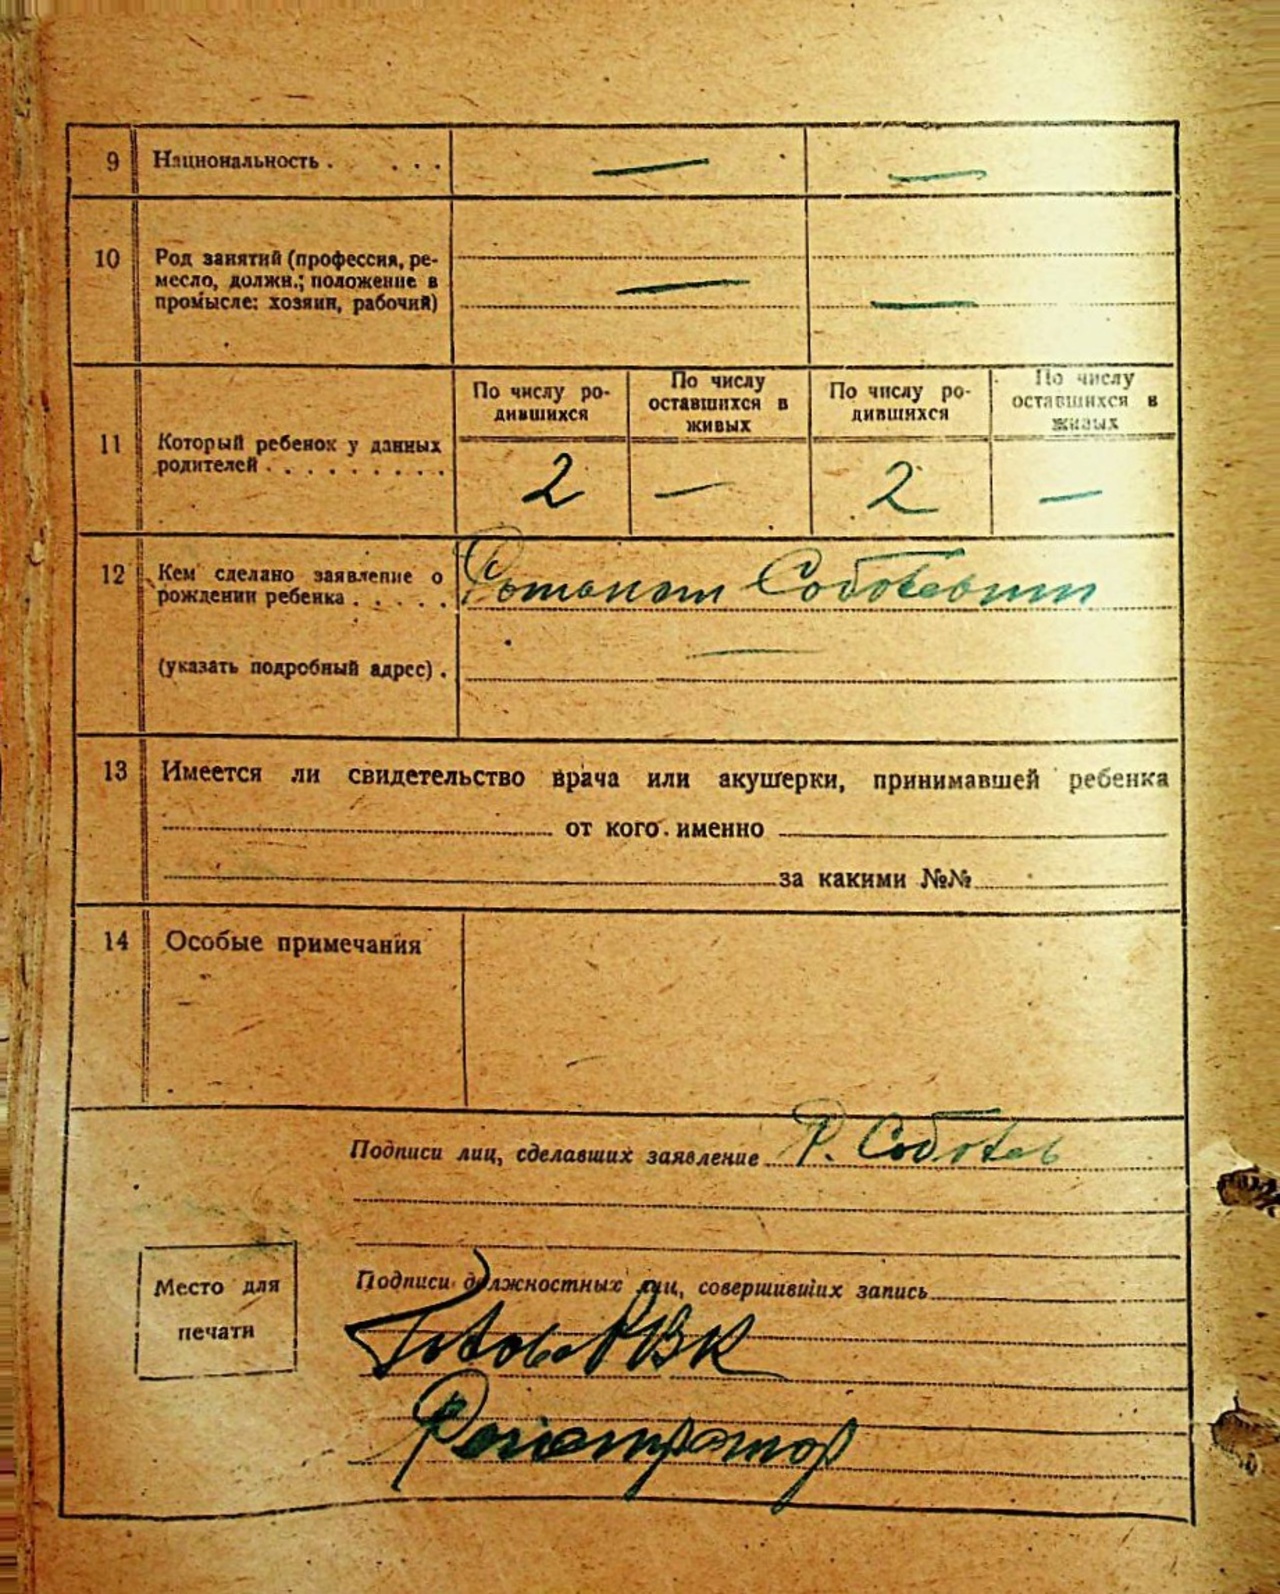 9 Национальность . . . . — —
10 Род занятий (профессия, ре-
месло, должн.; положение в
промысле: хозяин, рабочий) — —
По числу ро-
дившихся
По числу
оставшихся в
живых
По числу ро-
дившихся
По числу
оставшихся в
живых
11 Который ребенок у данных
родителей . . . . . . . . .
2 — 2 —
12 Кем сделано заявление о
рождении ребенка . . . . .
(указать подробный адрес) . —
13 Имеется ли свидетельство врача или акушерки, принимавшей ребенка
от кого именно
за какими №№
14 Особые примечания
Подписи лиц, сделавших заявление Р.
Подписи должностных лиц, совершивших запись
Место для
печати